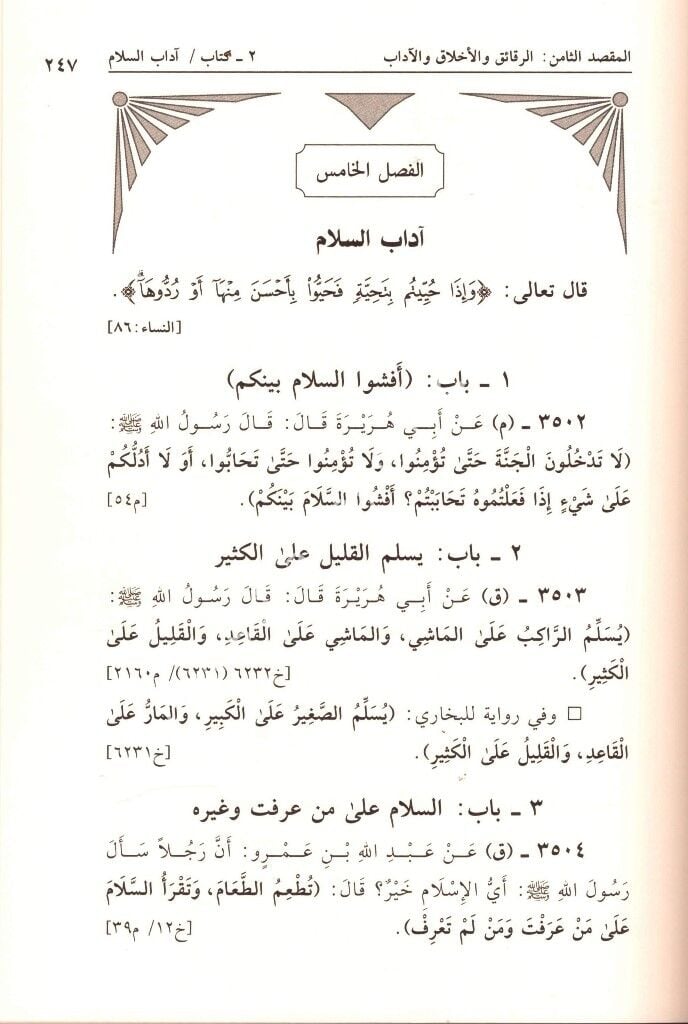 المقصد الثامن: الرقائق والأخلاق والآداب ٢ ـ كتاب / آداب السلام ٢٤٧
الفصل الخامس
آداب السلام
قال تعالى: ﴿وَإِذَا حُيِّيتُم بِتَحِيَّةٍ فَحَيُّوا۟ بِأَحْسَنَ مِنْهَآ أَوْ رُدُّوهَآ﴾.
[النساء:٨٦]
١ ـ باب: (أَفشوا السلام بينكم)
٣٥٠٢ ـ (م) عَنْ أَبِي هُرَيْرَةَ قَالَ: قَالَ رَسُولُ اللهِ ﷺ:
(لَا تَدْخُلُونَ الْجَنَّةَ حَتَّىٰ تُؤْمِنُوا، وَلَا تُؤْمِنُوا حَتَّىٰ تَحَابُّوا، أَوَ لَا أَدُلُّكُمْ
عَلَىٰ شَيْءٍ إِذَا فَعَلْتُمُوهُ تَحَابَبْتُمْ؟ أَفْشُوا السَّلَامَ بَيْنَكُمْ). [م٥٤]
٢ ـ باب: يسلم القليل علىٰ الكثير
٣٥٠٣ ـ (ق) عَنْ أَبِي هُرَيْرَةَ قَالَ: قَالَ رَسُولُ اللهِ ﷺ:
(يُسَلِّمُ الرَّاكِبُ عَلَىٰ الْمَاشِي، وَالْمَاشِي عَلَىٰ الْقَاعِدِ، وَالْقَلِيلُ عَلَىٰ
الْكَثِيرِ). [خ٦٢٣٢ (٦٢٣١)/ م٢١٦٠]
□ وفي رواية للبخاري: (يُسَلِّمُ الصَّغِيرُ عَلَىٰ الْكَبِيرِ، وَالمَارُّ عَلَىٰ
الْقَاعِدِ، وَالْقَلِيلُ عَلَىٰ الْكَثِيرِ). [خ٦٢٣١]
٣ ـ باب: السلام علىٰ من عرفت وغيره
٣٥٠٤ ـ (ق) عَنْ عَبْدِ اللهِ بْنِ عَمْرٍو: أَنَّ رَجُلاً سَأَلَ
رَسُولَ اللهِ ﷺ: أَيُّ الإِسْلَامِ خَيْرٌ؟ قَالَ: (تُطْعِمُ الطَّعَامَ، وَتَقْرَأُ السَّلَامَ
عَلَىٰ مَنْ عَرَفْتَ وَمَنْ لَمْ تَعْرِفْ). [خ١٢/ م٣٩]